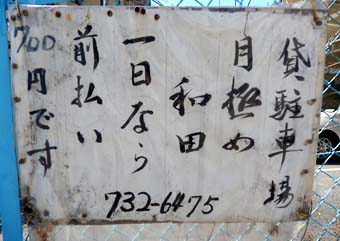 貸駐車場
月極め
和田
一日なら
前払い
700円です
732-6475